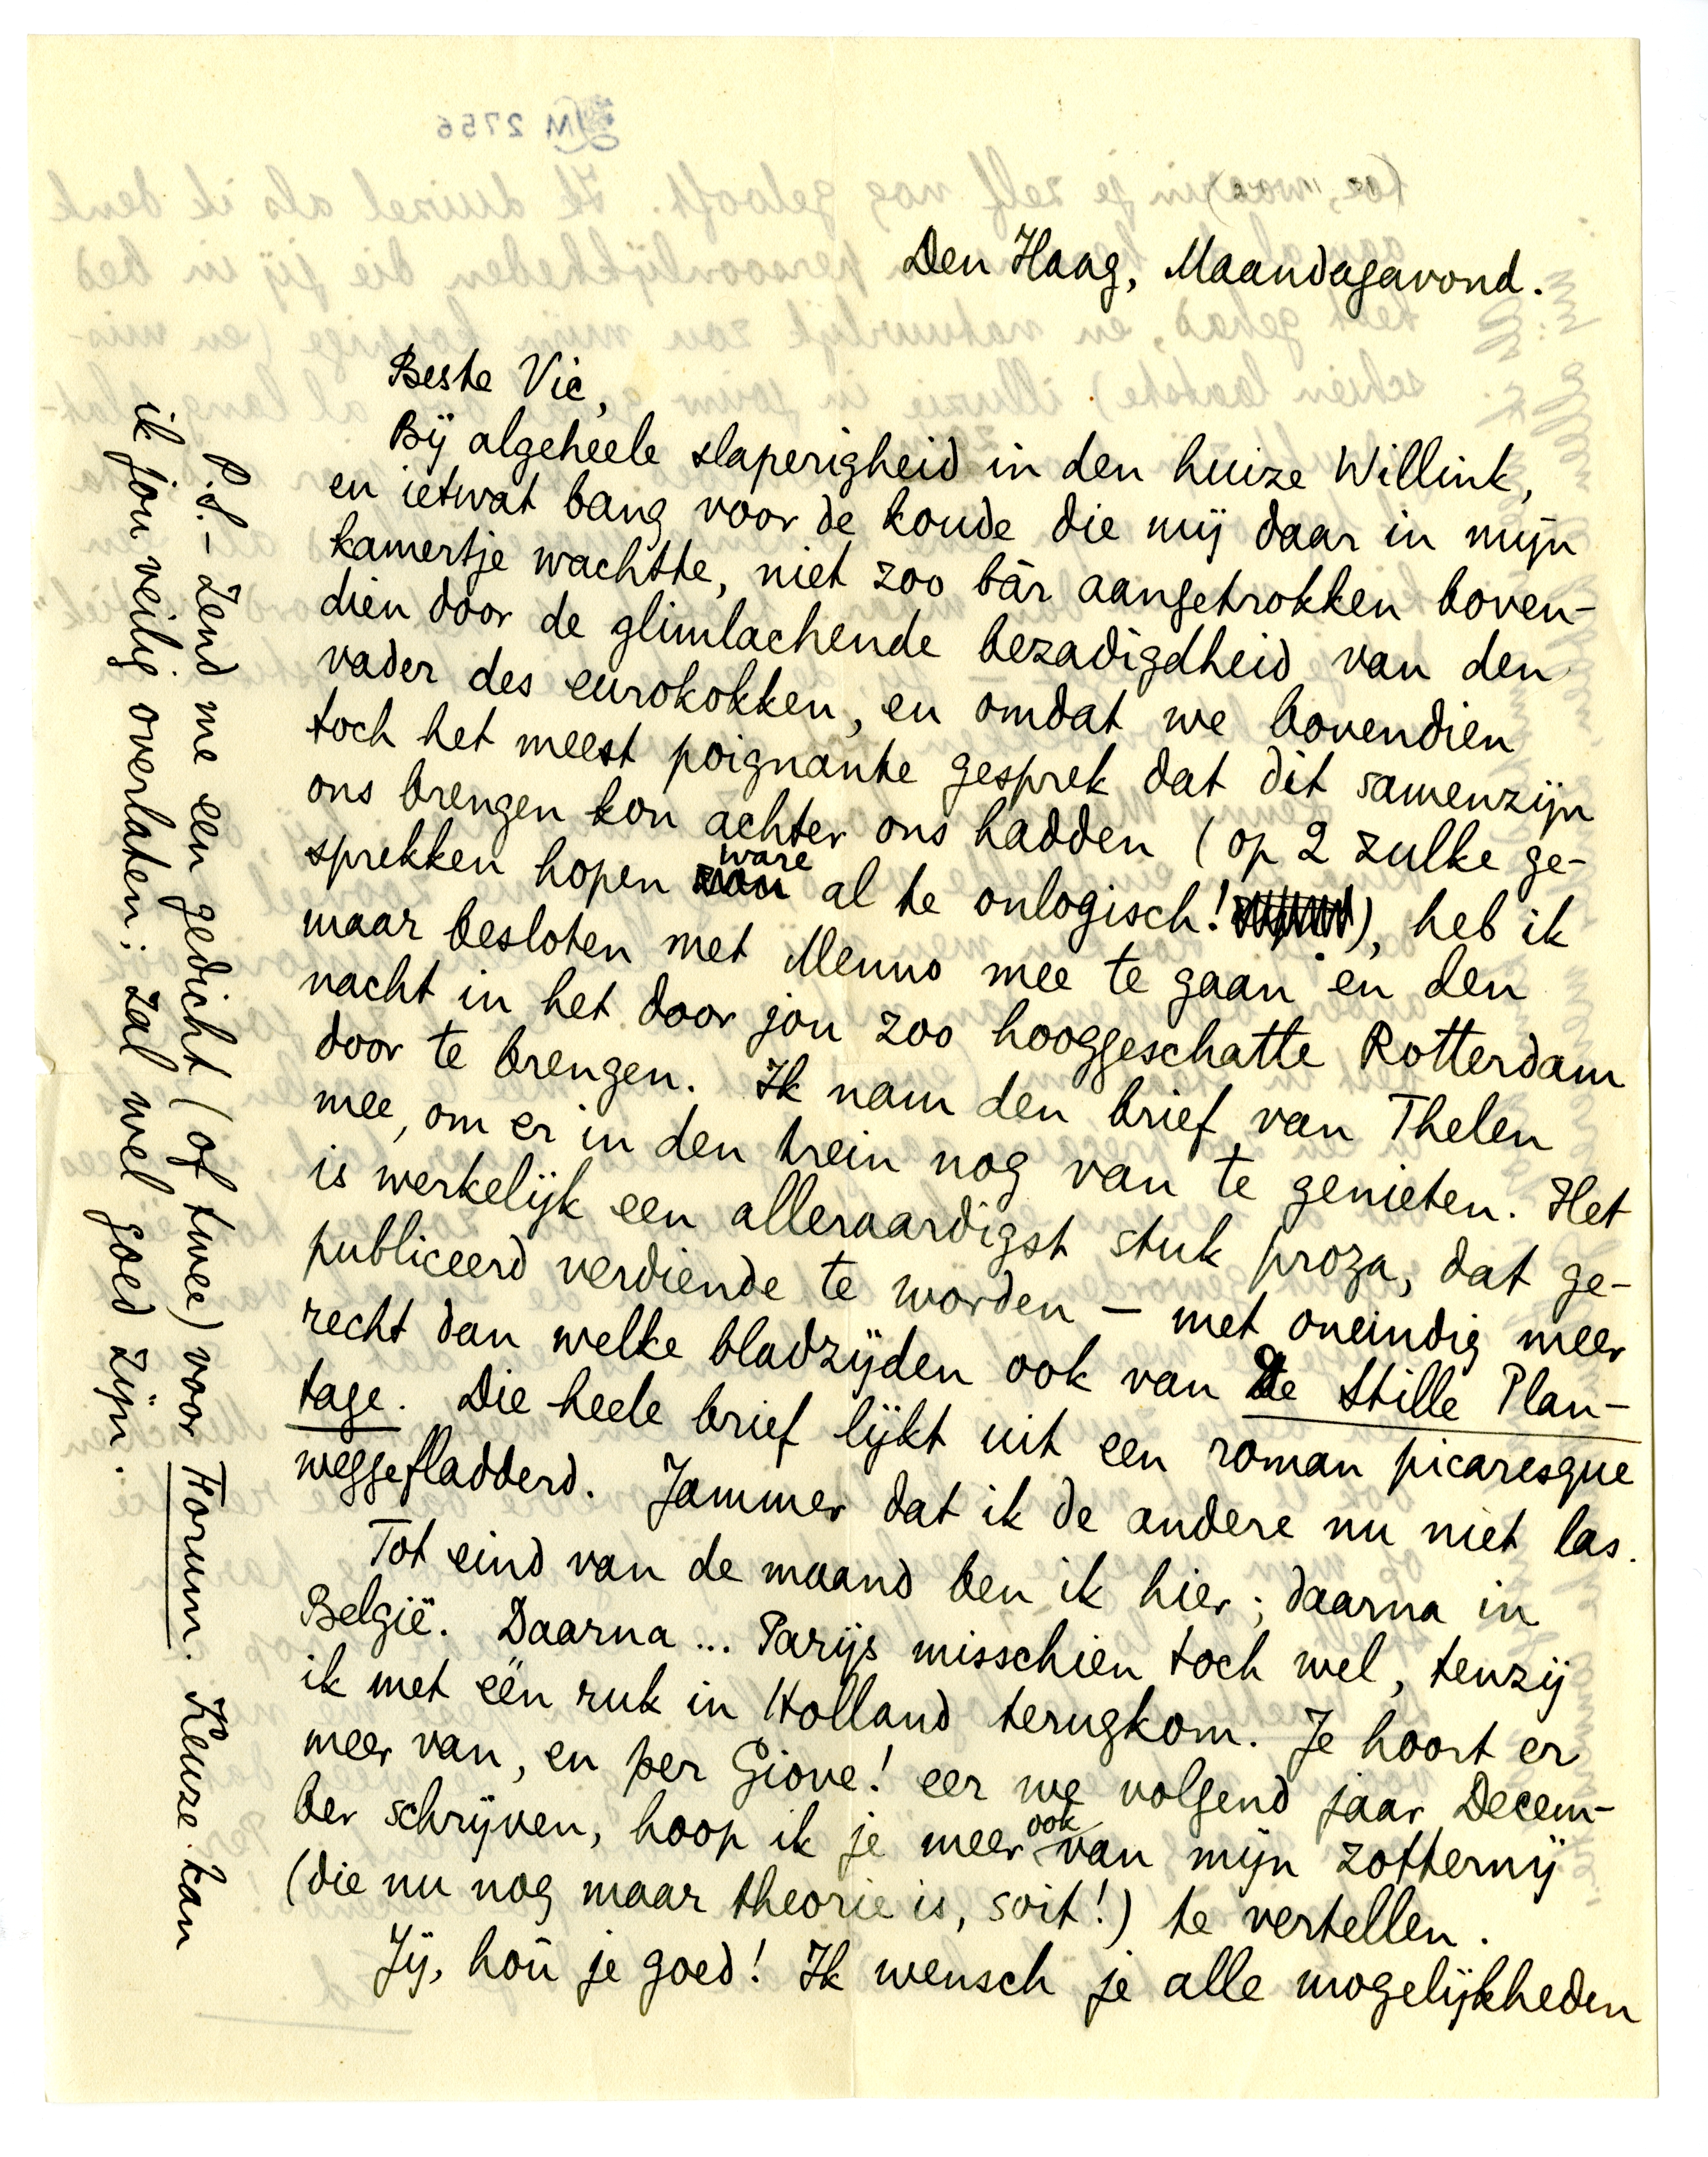 Den Haag, Maandagavond.
Beste Vic,
Bij algeheele slaperigheid in den huize Willink,
en ietwat bang voor de koude die mij daar in mijn
kamertje wachtte, niet zoo bar aangetrokken boven-
dien door de glimlachende bezadigdheid van den
vader des eurokokken, en omdat we bovendien
toch het meest poignante gesprek dat dit samenzijn
ons brengen kon achter ons hadden (op 2 zulke ge-
sprekken hopen ware al te onlogisch!), heb ik
maar besloten met Menno mee te gaan en den
nacht in het door jou zoo hooggeschatte Rotterdam
door te brengen. Ik nam den brief van Thelen
mee, om er in den trein nog van te genieten. Het
is werkelijk een alleraardigst stuk proza, dat ge-
publiceerd verdiende te worden – met oneindig meer
recht dan welke bladzijden ook van De Stille Plan-
tage. Die heele brief lijkt uit een roman picaresque
weggefladderd. Jammer dat ik de andere nu niet las.
Tot eind van de maand ben ik hier; daarna in
België. Daarna... Parijs misschien toch wel, tenzij
ik met één ruk in Holland terugkom. Je hoort er
meer van, en per Giove! eer we volgend jaar Decem-
ber schrijven, hoop ik je meer ook van mijn zotternij
(die nu nog maar theorie is, soit!) te vertellen.
Jij, hou je goed! Ik wensch je alle mogelijkheden
P.S. – Zend me een gedicht (of twee) voor Forum. Keuze kan
ik jou veilig overlaten; zal wel goed zijn.
LM 2756